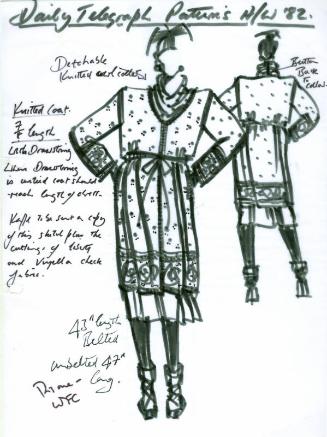 Daily Telegraph Patterns A/W '82.
Detachable
Knitted collar
Button
Back
to
collar.
Knitted Coat.
7/8 length
with Drawstring
When Drawstring
is untied coat should
reach length of dress.
Kaffe to be sent a copy
of this sketch plus the
cuttings of liberty
and Viyella check
fabric.
43" length
Belted
unbelted 47"
long.